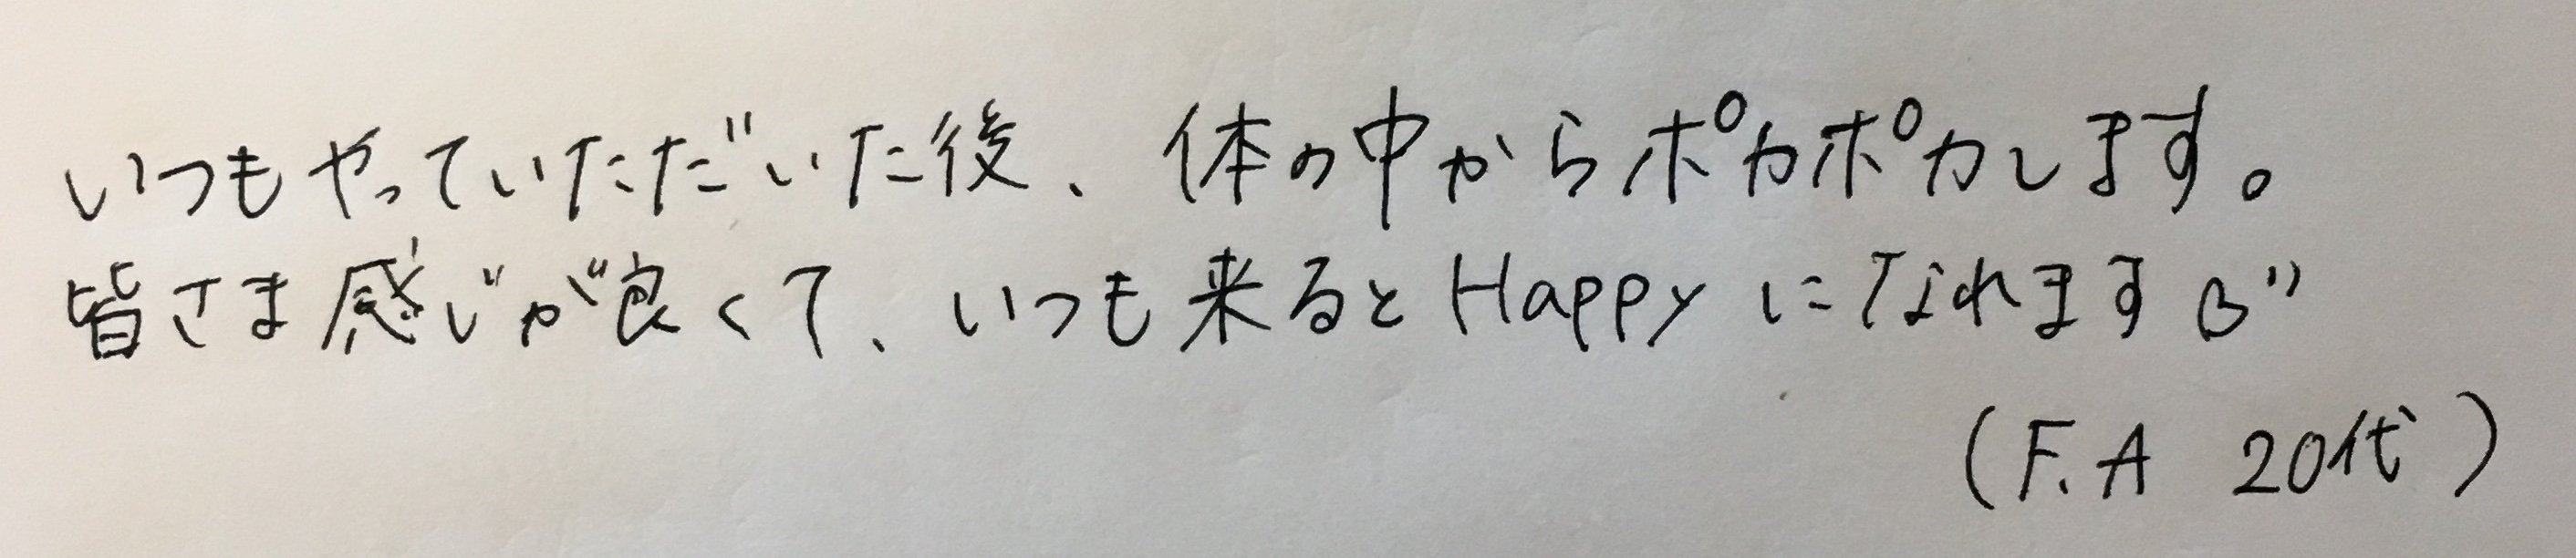 いつもやっていただいた後、体の中からポカポカします。
皆さま感じが良くて、いつも来るとHappyになれます
(F.A 20代)